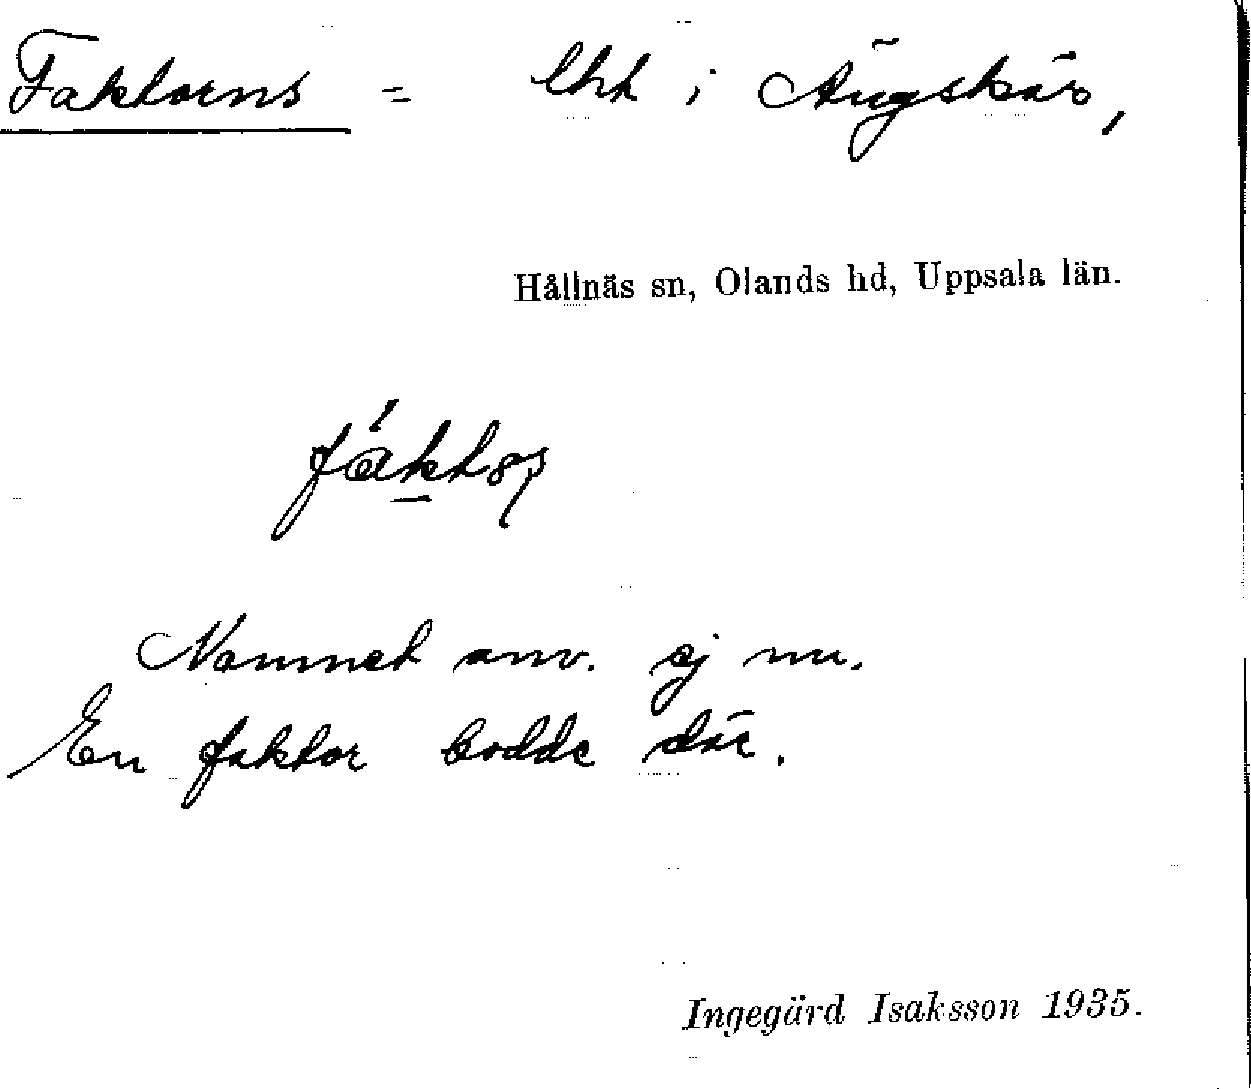 Faktorns = lht i Ängskär,
Hållnäs sn, Olands hd, Uppsala län.
Namnet anv. ej nu.
En faktor bodde där.
Ingegärd Isaksson 1935.